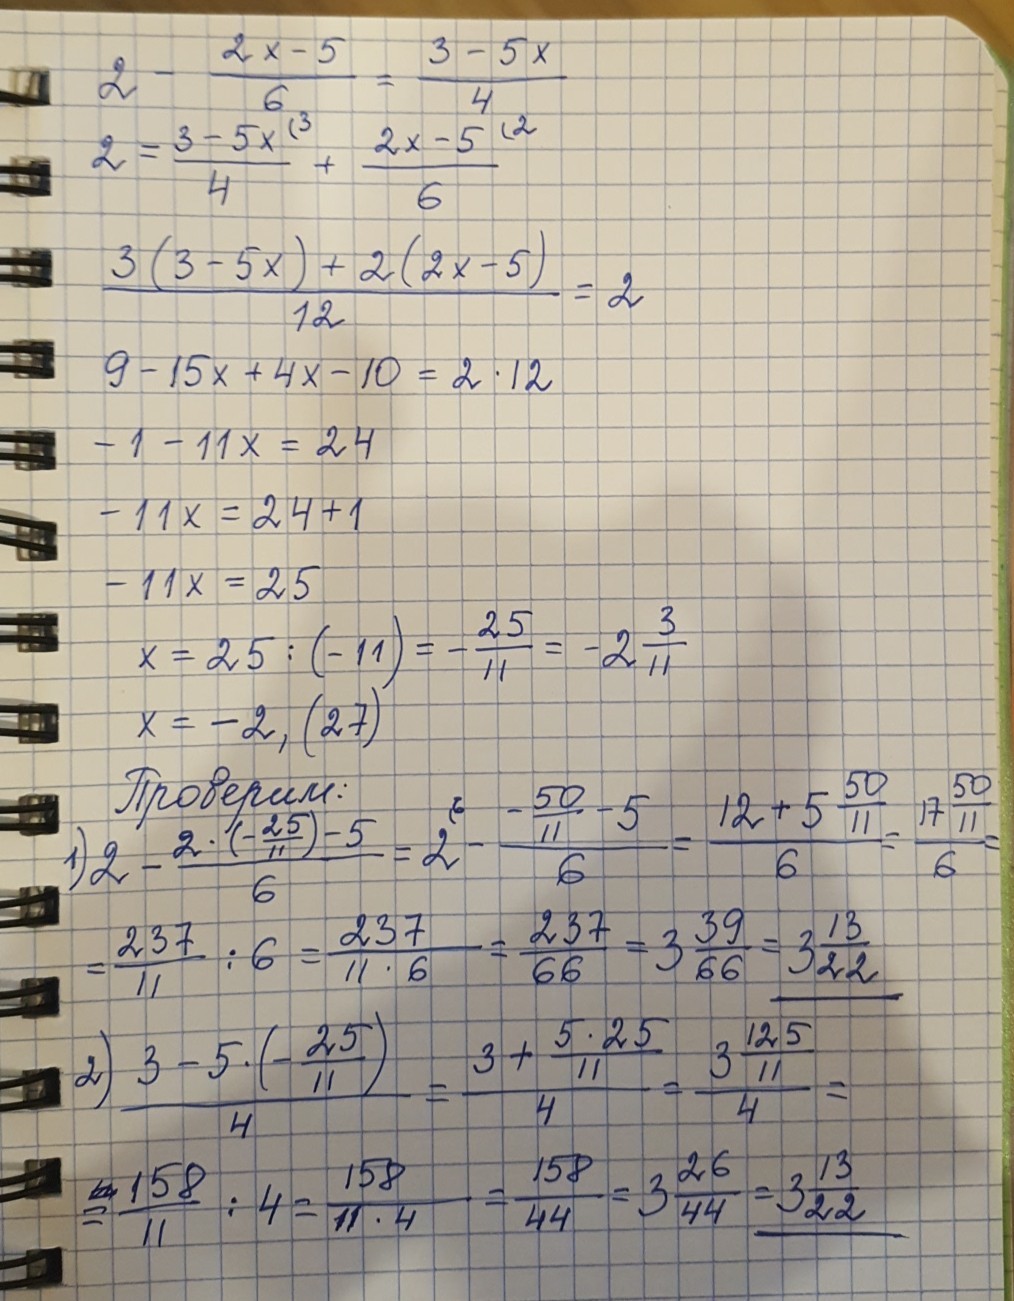 2 - (2x-5)/6 = (3-5x)/4
2 = (3-5x)/4 (3 + (2x-5)/6 (2
(3(3-5x)+2(2x-5))/12 = 2
9-15x+4x-10 = 2·12
-1-11x = 24
-11x = 24+1
-11x = 25
x = 25:(-11) = -25/11 = -2 3/11
x = -2,(27)
Проверим:
1) 2 - (2·(-25/11)-5)/6 = 2(6 - (-50/11 -5)/6 = (12+5 50/11)/6 = (17 50/11)/6 =
= 237/11 : 6 = 237/(11·6) = 237/66 = 3 39/66 = 3 13/22
2) (3-5·(-25/11))/4 = (3+ (5·25)/11)/4 = (3 125/11)/4 =
= 158/11 : 4 = 158/(11·4) = 158/44 = 3 26/44 = 3 13/22